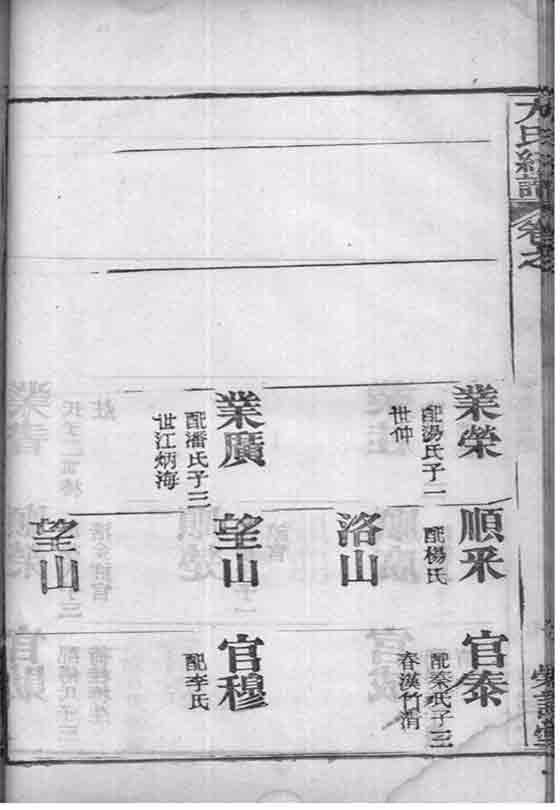 氏統譜 卷之
業榮
配湯氏子一
世仲
業廣
配潘氏子三
世江炳海
順采
配楊氏
洛山
望山
望山
官泰
配秦氏子三
春漢竹消
官穆
配李氏